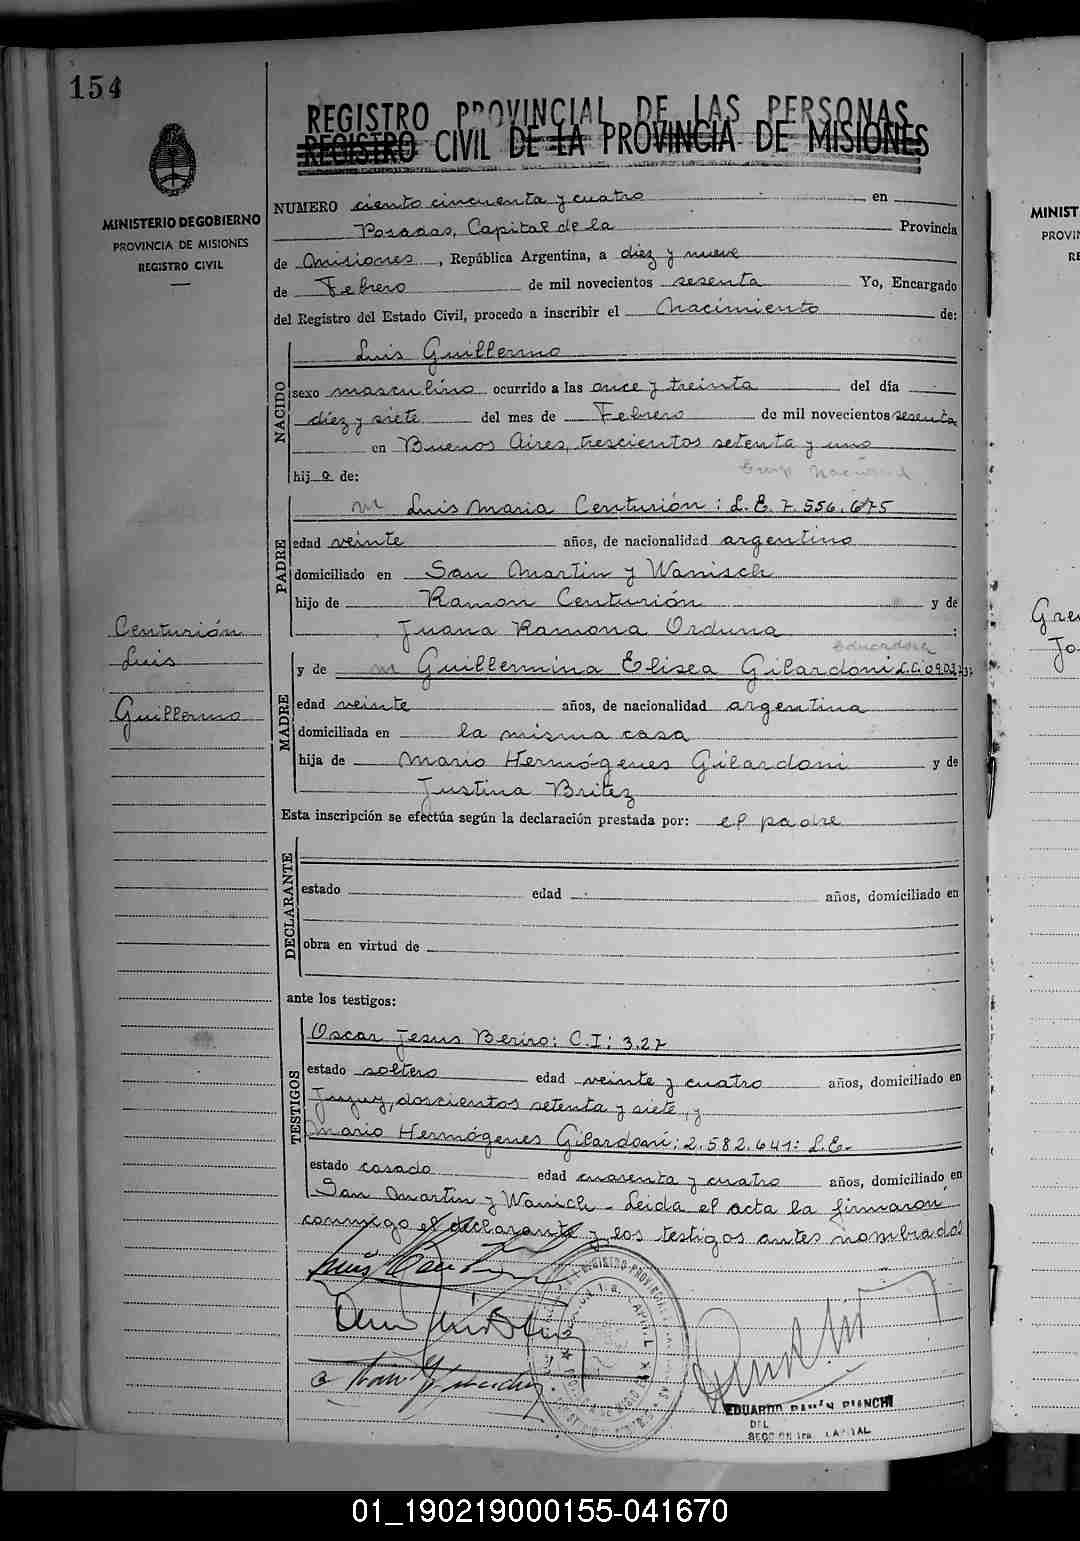 154
REGISTRO PROVINCIAL DE LAS PERSONAS
REGISTRO CIVIL DE LA PROVINCIA DE MISIONES
MINISTERIO DE GOBIERNO
PROVINCIA DE MISIONES
REGISTRO CIVIL
NUMERO ciento cincuenta y cuatro en
Posadas, Capital de la Provincia
de Misiones, República Argentina, a diez y nueve
de Febrero de mil novecientos sesenta Yo, Encargado
del Registro del Estado Civil, procedo a inscribir el Nacimiento de:
NACIDO
Luis Guillermo
sexo masculino ocurrido a las once y treinta del día
diez y siete del mes de Febrero de mil novecientos sesenta
en Buenos Aires, trescientos setenta y uno
hijo de:
PADRE
Luis Maria Centurión: L.E. 7.556.675
edad veinte años, de nacionalidad argentino
domiciliado en San Martin y Wanisch
hijo de Ramon Centurión y de
Juana Ramona Orduna;
Centurión
Luis
Guillermo
MADRE
y de Guillermina Elisea Gilardoni L.C. 0.903.
edad veinte años, de nacionalidad argentina
domiciliada en la misma casa
hija de Mario Hermógenes Gilardoni y de
Justina Britez
Esta inscripción se efectúa según la declaración prestada por: el padre
DECLARANTE
estado edad años, domiciliado en
obra en virtud de
ante los testigos:
TESTIGOS
Oscar Jesus Beriro: C.I: 3.27
estado soltero edad veinte y cuatro años, domiciliado en
Jujuy, doscientos setenta y siete, y
Mario Hermógenes Gilardoni: 2.582.641: L.E.
estado casado edad cuarenta y cuatro años, domiciliado en
San Martin y Wanich - Leida el acta la firmaron
conmigo el declarante y los testigos antes nombrados
EDUARDO RAMÓN BIANCHI
DEL
SECCION 1ra. CAPITAL
MINIST
PROVIN
RE
Gre
Jo
01_190219000155-041670